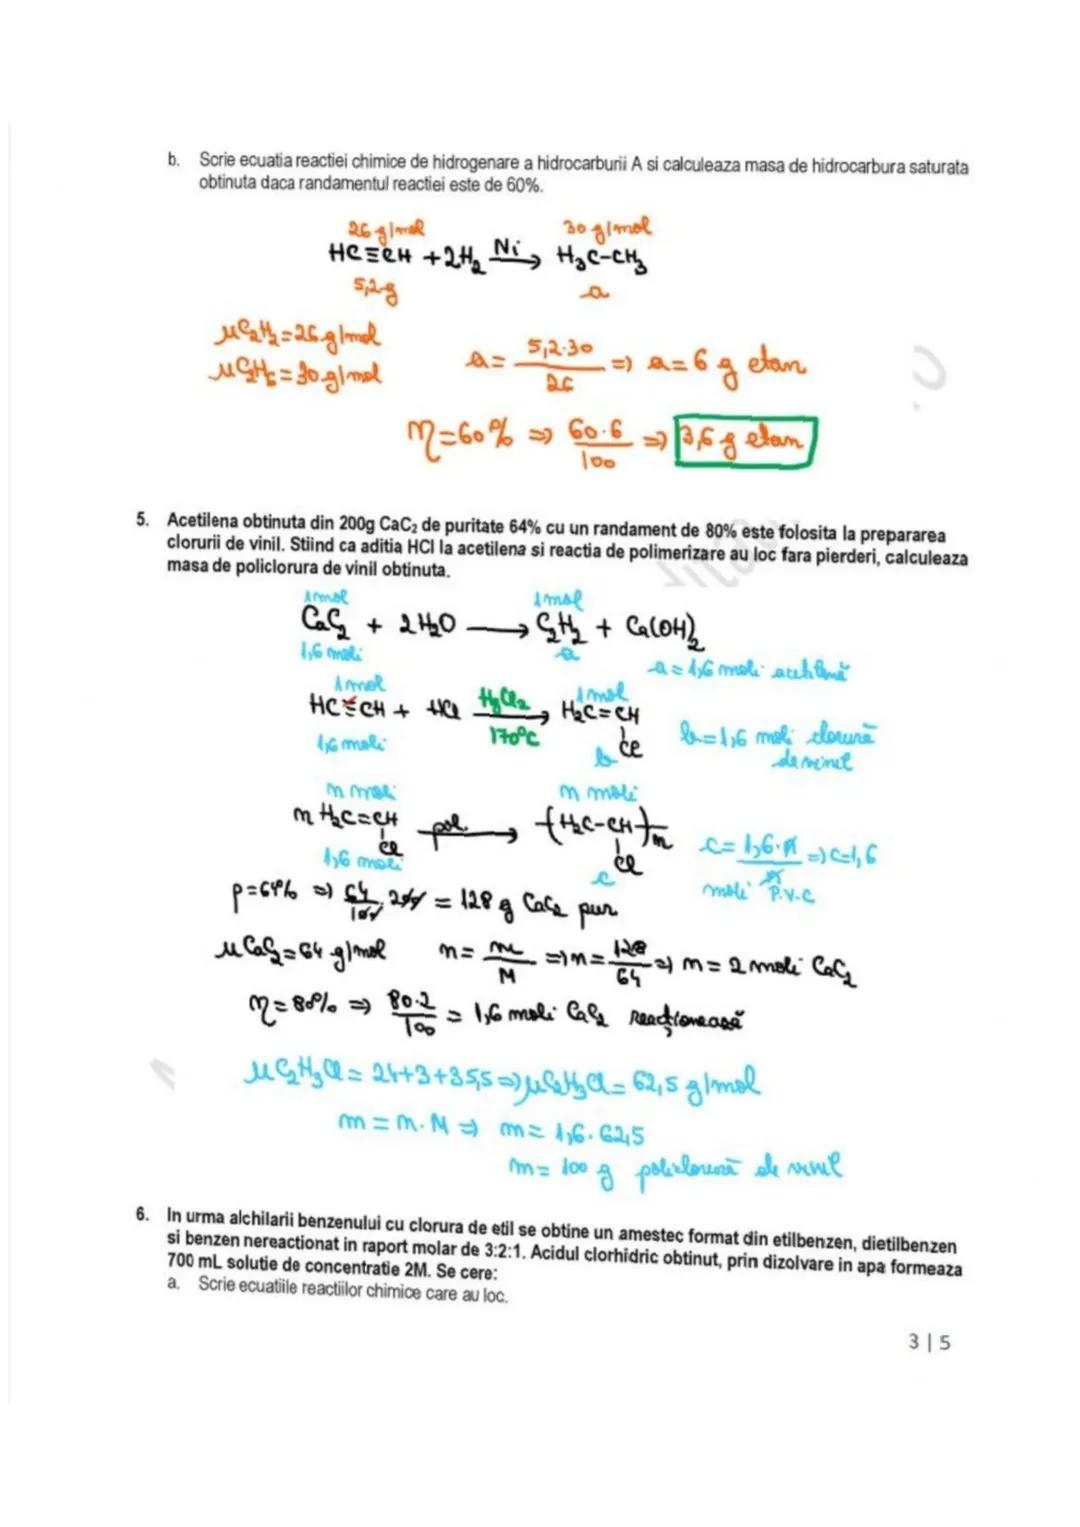 b. Scrie ecuatia reactiei chimice de hidrogenare a hidrocarburii A si calculeaza masa de hidrocarbura saturata
obtinuta daca randamentul reactiei este de 60%.
26 g/mol 30 g/mol
HC≡CH + 2H₂ Ni→ H₃C-CH₃
5,2 g a
μC₂H₂ = 26 g/mol
μC₂H₆ = 30 g/mol
a = 5,2·30 / 26 => a = 6 g etan
η = 60% => 60·6 / 100 => 3,6 g etan
5. Acetilena obtinuta din 200g CaC₂ de puritate 64% cu un randament de 80% este folosita la prepararea
clorurii de vinil. Stiind ca aditia HCl la acetilena si reactia de polimerizare au loc fara pierderi, calculeaza
masa de policlorura de vinil obtinuta.
1 mol 1 mol
CaC₂ + 2H₂O → C₂H₂ + Ca(OH)₂
1,6 moli a a = 1,6 moli acetilenă
1 mol 1 mol
HC≡CH + HCl HgCl₂→ H₂C=CH
170°C Cl
1,6 moli b b = 1,6 moli clorură
de vinil
n moli n moli
n H₂C=CH pol.→ -(H₂C-CH)-n
Cl Cl
1,6 moli c c = 1,6·n / n => c = 1,6
moli P.V.C
p = 64% => 64/100 · 200 = 128 g CaC₂ pur
μCaC₂ = 64 g/mol n = m/M => n = 128/64 => n = 2 moli CaC₂
η = 80% => 80·2 / 100 = 1,6 moli CaC₂ reacționează
μC₂H₃Cl = 24+3+35,5 => μC₂H₃Cl = 62,5 g/mol
m = n·M => m = 1,6·62,5
m = 100 g policlorură de vinil
6. In urma alchilarii benzenului cu clorura de etil se obtine un amestec format din etilbenzen, dietilbenzen
si benzen nereactionat in raport molar de 3:2:1. Acidul clorhidric obtinut, prin dizolvare in apa formeaza
700 mL solutie de concentratie 2M. Se cere:
a. Scrie ecuatiile reactiilor chimice care au loc.
3 | 5